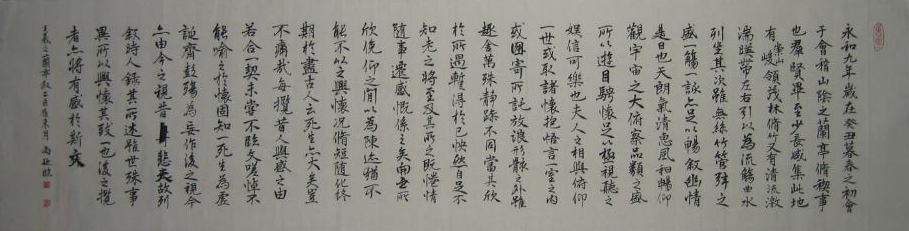 永和九年歲在癸丑暮春之初會
于會稽山陰之蘭亭脩稧事
也羣賢畢至少長咸集此地
有崇山峻領茂林脩竹又有清流激
湍暎帶左右引以為流觴曲水
列坐其次雖無絲竹管弦之
盛一觴一詠亦足以暢敘幽情
是日也天朗氣清惠風和暢仰
觀宇宙之大俯察品類之盛
所以遊目騁懷足以極視聽之
娛信可樂也夫人之相與俯仰
一世或取諸懷抱悟言一室之內
或因寄所託放浪形骸之外雖
趣舍萬殊靜躁不同當其欣
於所遇暫得於己怏然自足不
知老之將至及其所之既惓情
隨事遷感慨係之矣向之所
欣俛仰之閒以為陳迹猶不
能不以之興懷況脩短隨化終
期於盡古人云死生亦大矣豈
不痛哉每攬昔人興感之由
若合一契未嘗不臨文嗟悼不
能喻之於懷固知一死生為虛
誕齊彭殤為妄作後之視今
亦由今之視昔悲夫故列
敘時人錄其所述雖世殊事
異所以興懷其致一也後之攬
者亦將有感於斯文
王羲之蘭亭敘